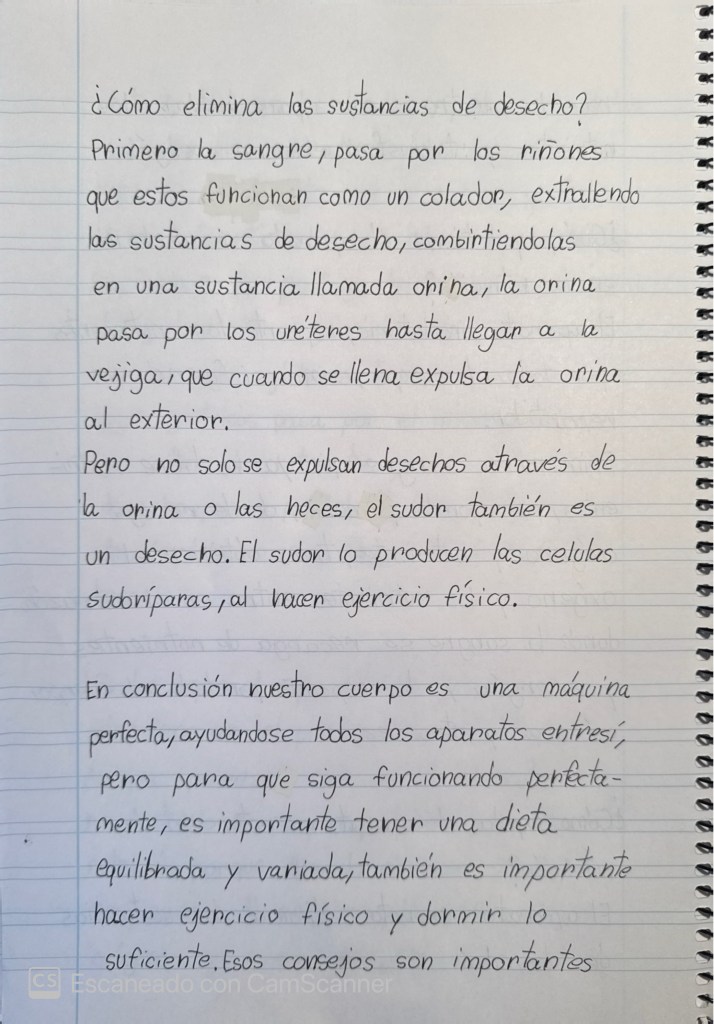 ¿Cómo elimina las sustancias de desecho?
Primero la sangre, pasa por los riñones
que estos funcionan como un colador, extrallendo
las sustancias de desecho, combintiendolas
en una sustancia llamada orina, la orina
pasa por los uréteres hasta llegar a la
vejiga, que cuando se llena expulsa la orina
al exterior.
Pero no solo se expulsan desechos através de
la orina o las heces, el sudor también es
un desecho. El sudor lo producen las celulas
sudoríparas, al hacer ejercicio físico.
En conclusión nuestro cuerpo es una máquina
perfecta, ayudandose todos los aparatos entresí,
pero para que siga funcionando perfecta-
mente, es importante tener una dieta
equilibrada y variada, también es importante
hacer ejercicio físico y dormir lo
suficiente. Esos consejos son importantes
CS Escaneado con CamScanner